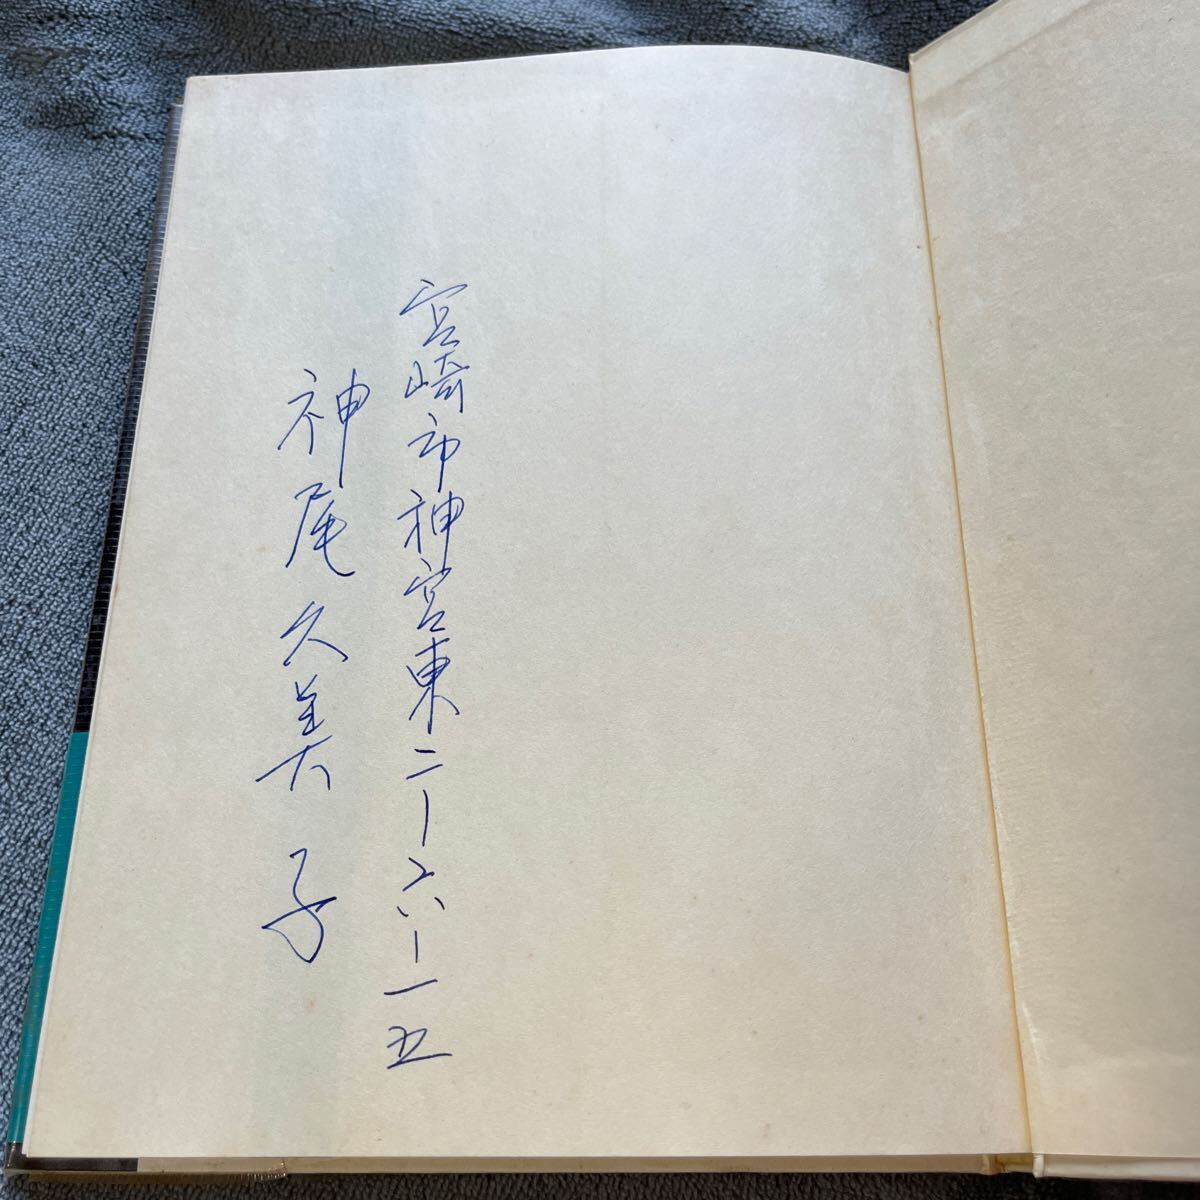 宮崎市神宮東二ー六ー一五
神尾久美子